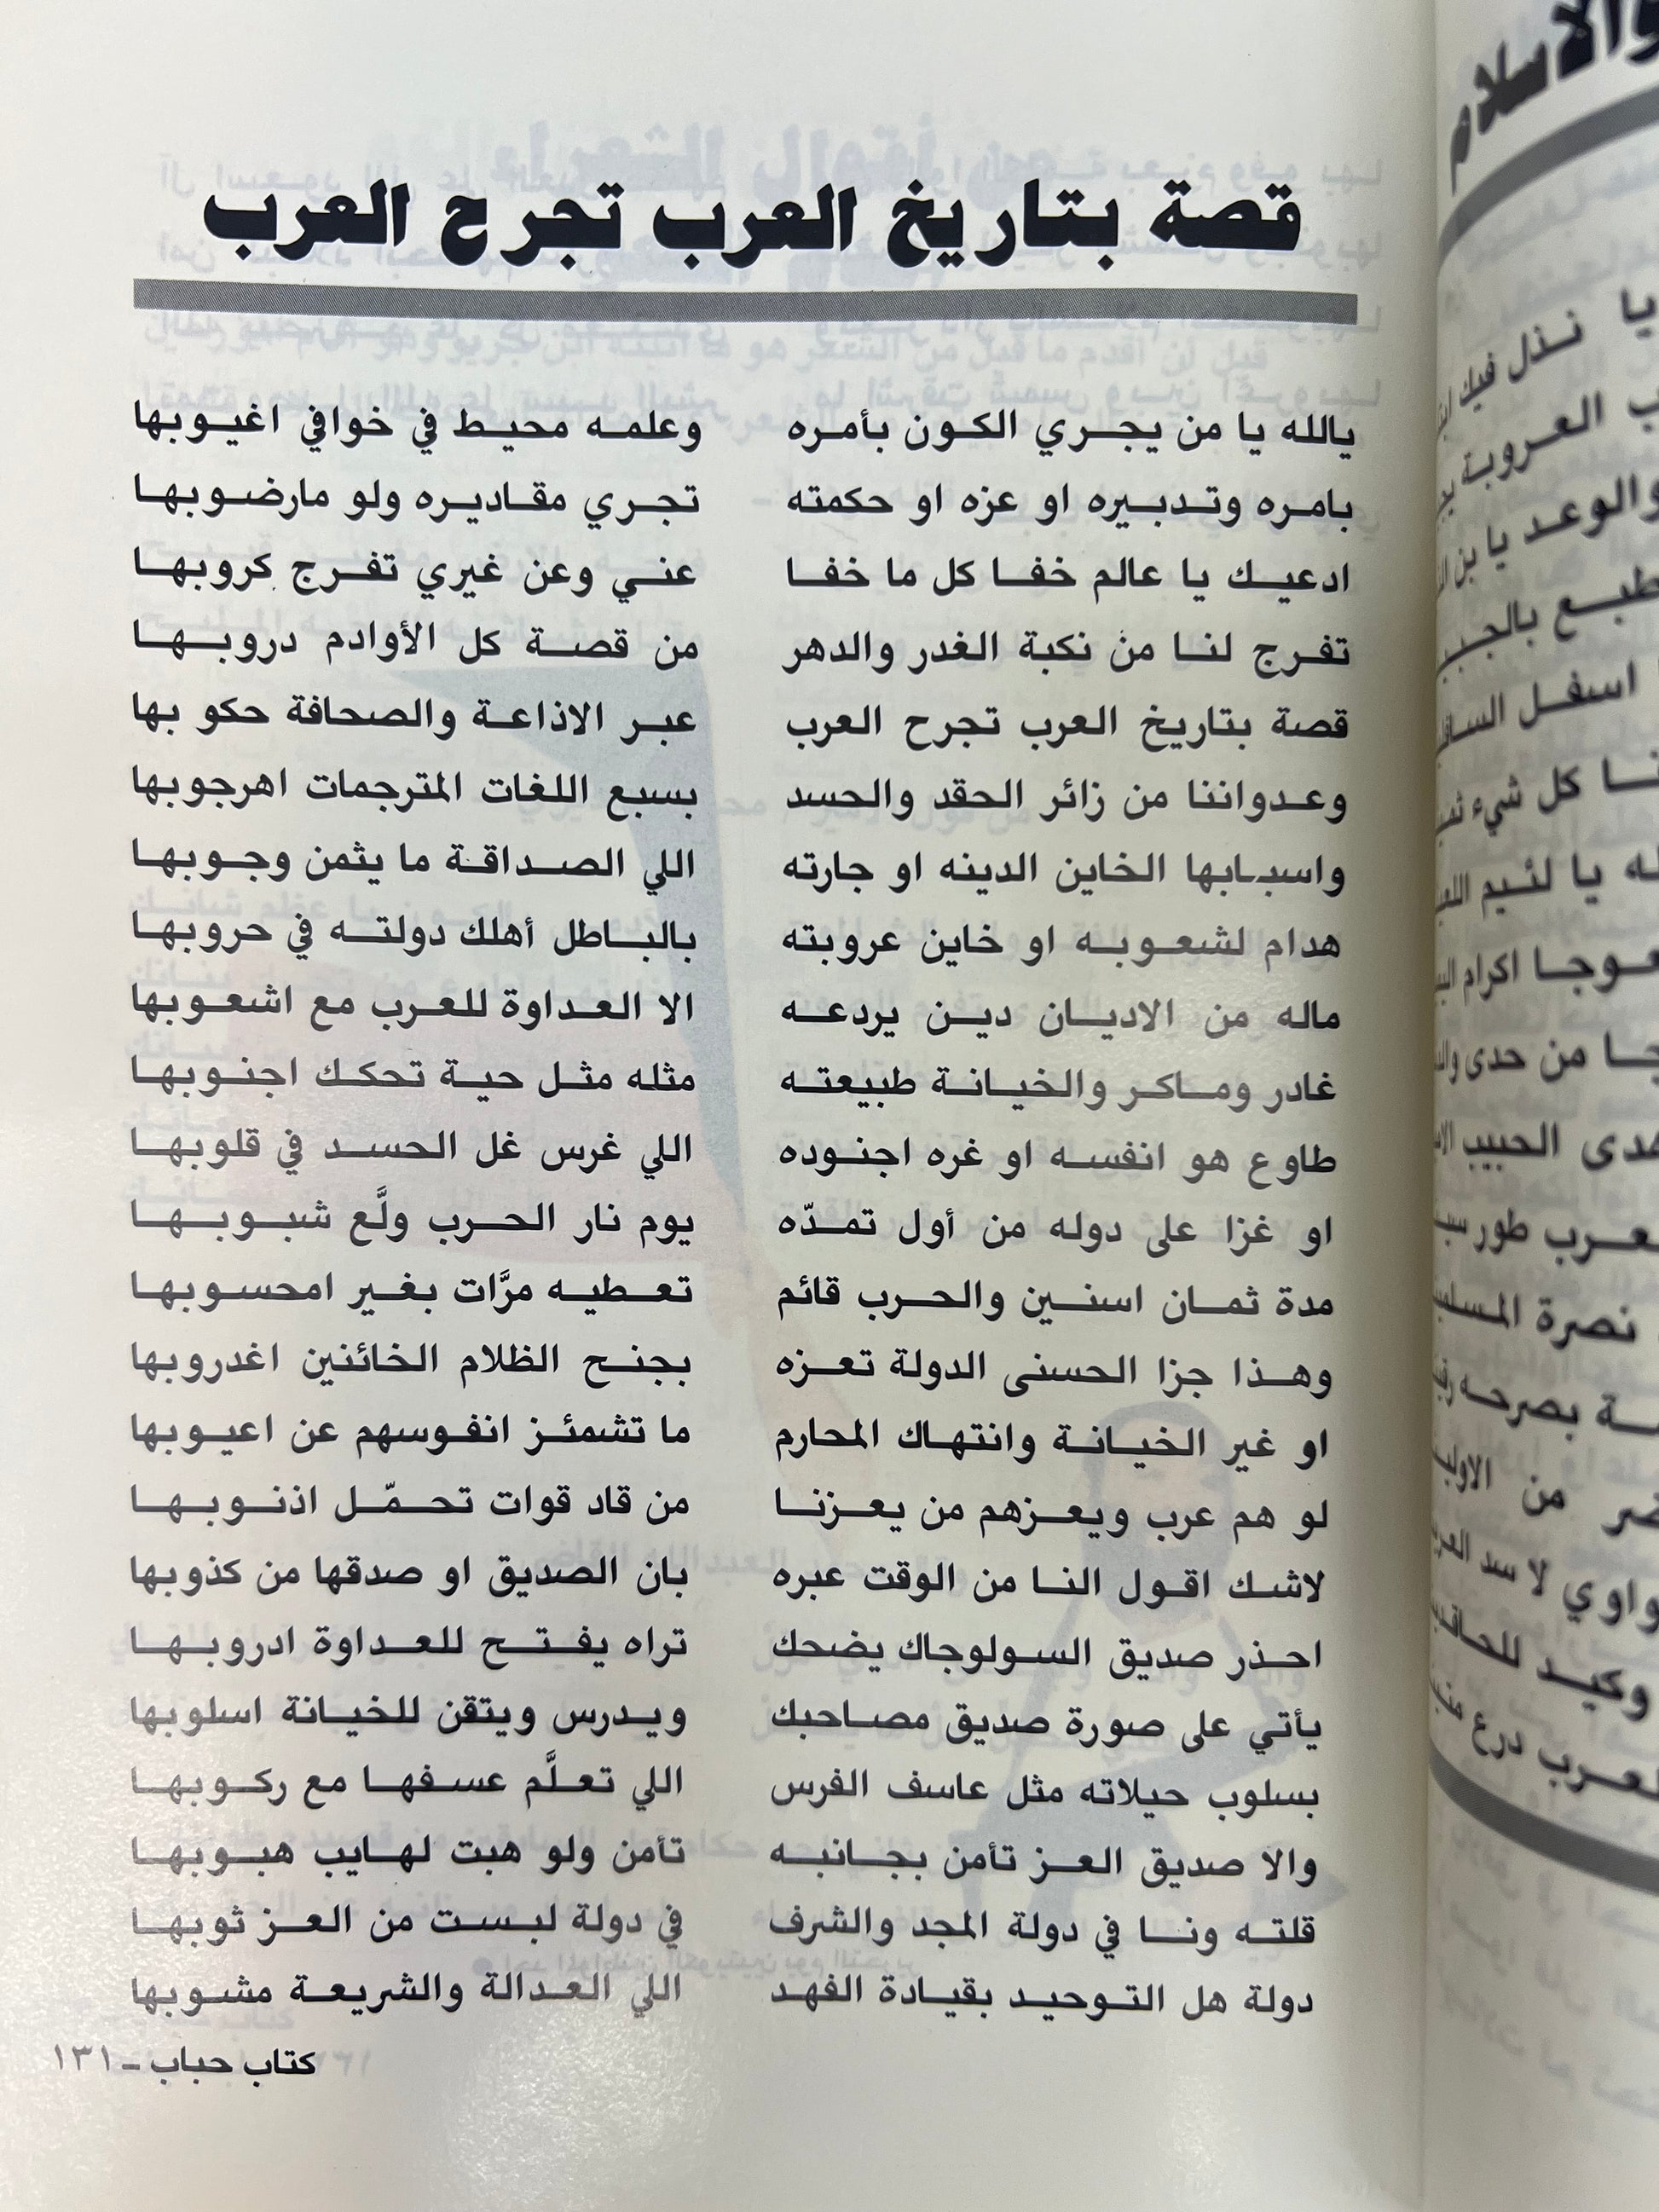 قصة بتاريخ العرب تجرح العرب
يالله يا من يجري الكون بأمره وعلمه محيط في خوافي اغيوبها
بامره وتدبيره او عزه او حكمته تجري مقاديره ولو مارضوبها
ادعيك يا عالم خفا كل ما خفا عني وعن غيري تفرج كروبها
تفرج لنا من نكبة الغدر والدهر من قصة كل الأوادم دروبها
قصة بتاريخ العرب تجرح العرب عبر الاذاعة والصحافة حكو بها
وعدواننا من زائر الحقد والحسد بسبع اللغات المترجمات اهرجوبها
واسبابها الخاين الدينه او جارته اللي الصداقة ما يثمن وجوبها
هدام لشعوبه او خاين عروبته بالباطل أهلك دولته في حروبها
ماله من الاديان دين يردعه الا العداوة للعرب مع اشعوبها
غادر وماكر والخيانة طبيعته مثله مثل حية تحكك اجنوبها
طاوع هو انفسه او غره اجنوده اللي غرس غل الحسد في قلوبها
او غزا على دوله من أول تمدّه يوم نار الحرب ولَّع شبوبها
مدة ثمان اسنين والحرب قائم تعطيه مرَّات بغير امحسوبها
وهذا جزا الحسنى الدولة تعزه بجنح الظلام الخائنين اغدروبها
او غير الخيانة وانتهاك المحارم ما تشمئز انفوسهم عن اعيوبها
لو هم عرب ويعزهم من يعزنا من قاد قوات تحمّل اذنوبها
لاشك اقول النا من الوقت عبره بان الصديق او صدقها من كذوبها
احذر صديق السولوجاك يضحك تراه يفتح للعداوة ادروبها
يأتي على صورة صديق مصاحبك ويدرس ويتقن للخيانة اسلوبها
بسلوب حيلاته مثل عاسف الفرس اللي تعلَّم عسفها مع ركوبها
والا صديق العز تأمن بجانبه تأمن ولو هبت لهايب هبوبها
قلته ونا في دولة المجد والشرف في دولة لبست من العز ثوبها
دولة هل التوحيد بقيادة الفهد اللي العدالة والشريعة مشوبها
كتاب حباب - ١٣١